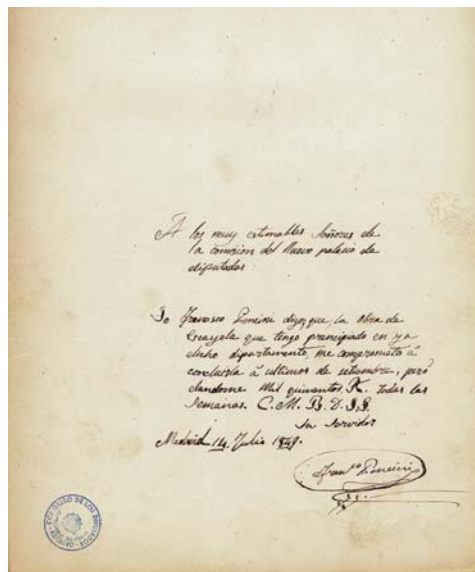 A los muy estimables Señores de
la comision del Nuevo palacio de
diputados
Yo Francisco Poncini digo, que, la obra de
Escayola que tengo principiado en ya
dicho dipartamento, me comprometo à
concluirla à ultimos de setiembre, pero
dandome Mil quinientos R. todas las
Semanas. C. M. B. D. S. S.
Su Servidor
Madrid 14 Julio 1849.
Fran.co Poncini
CONGRESO DE LOS DIPUTADOS
ARCHIVO